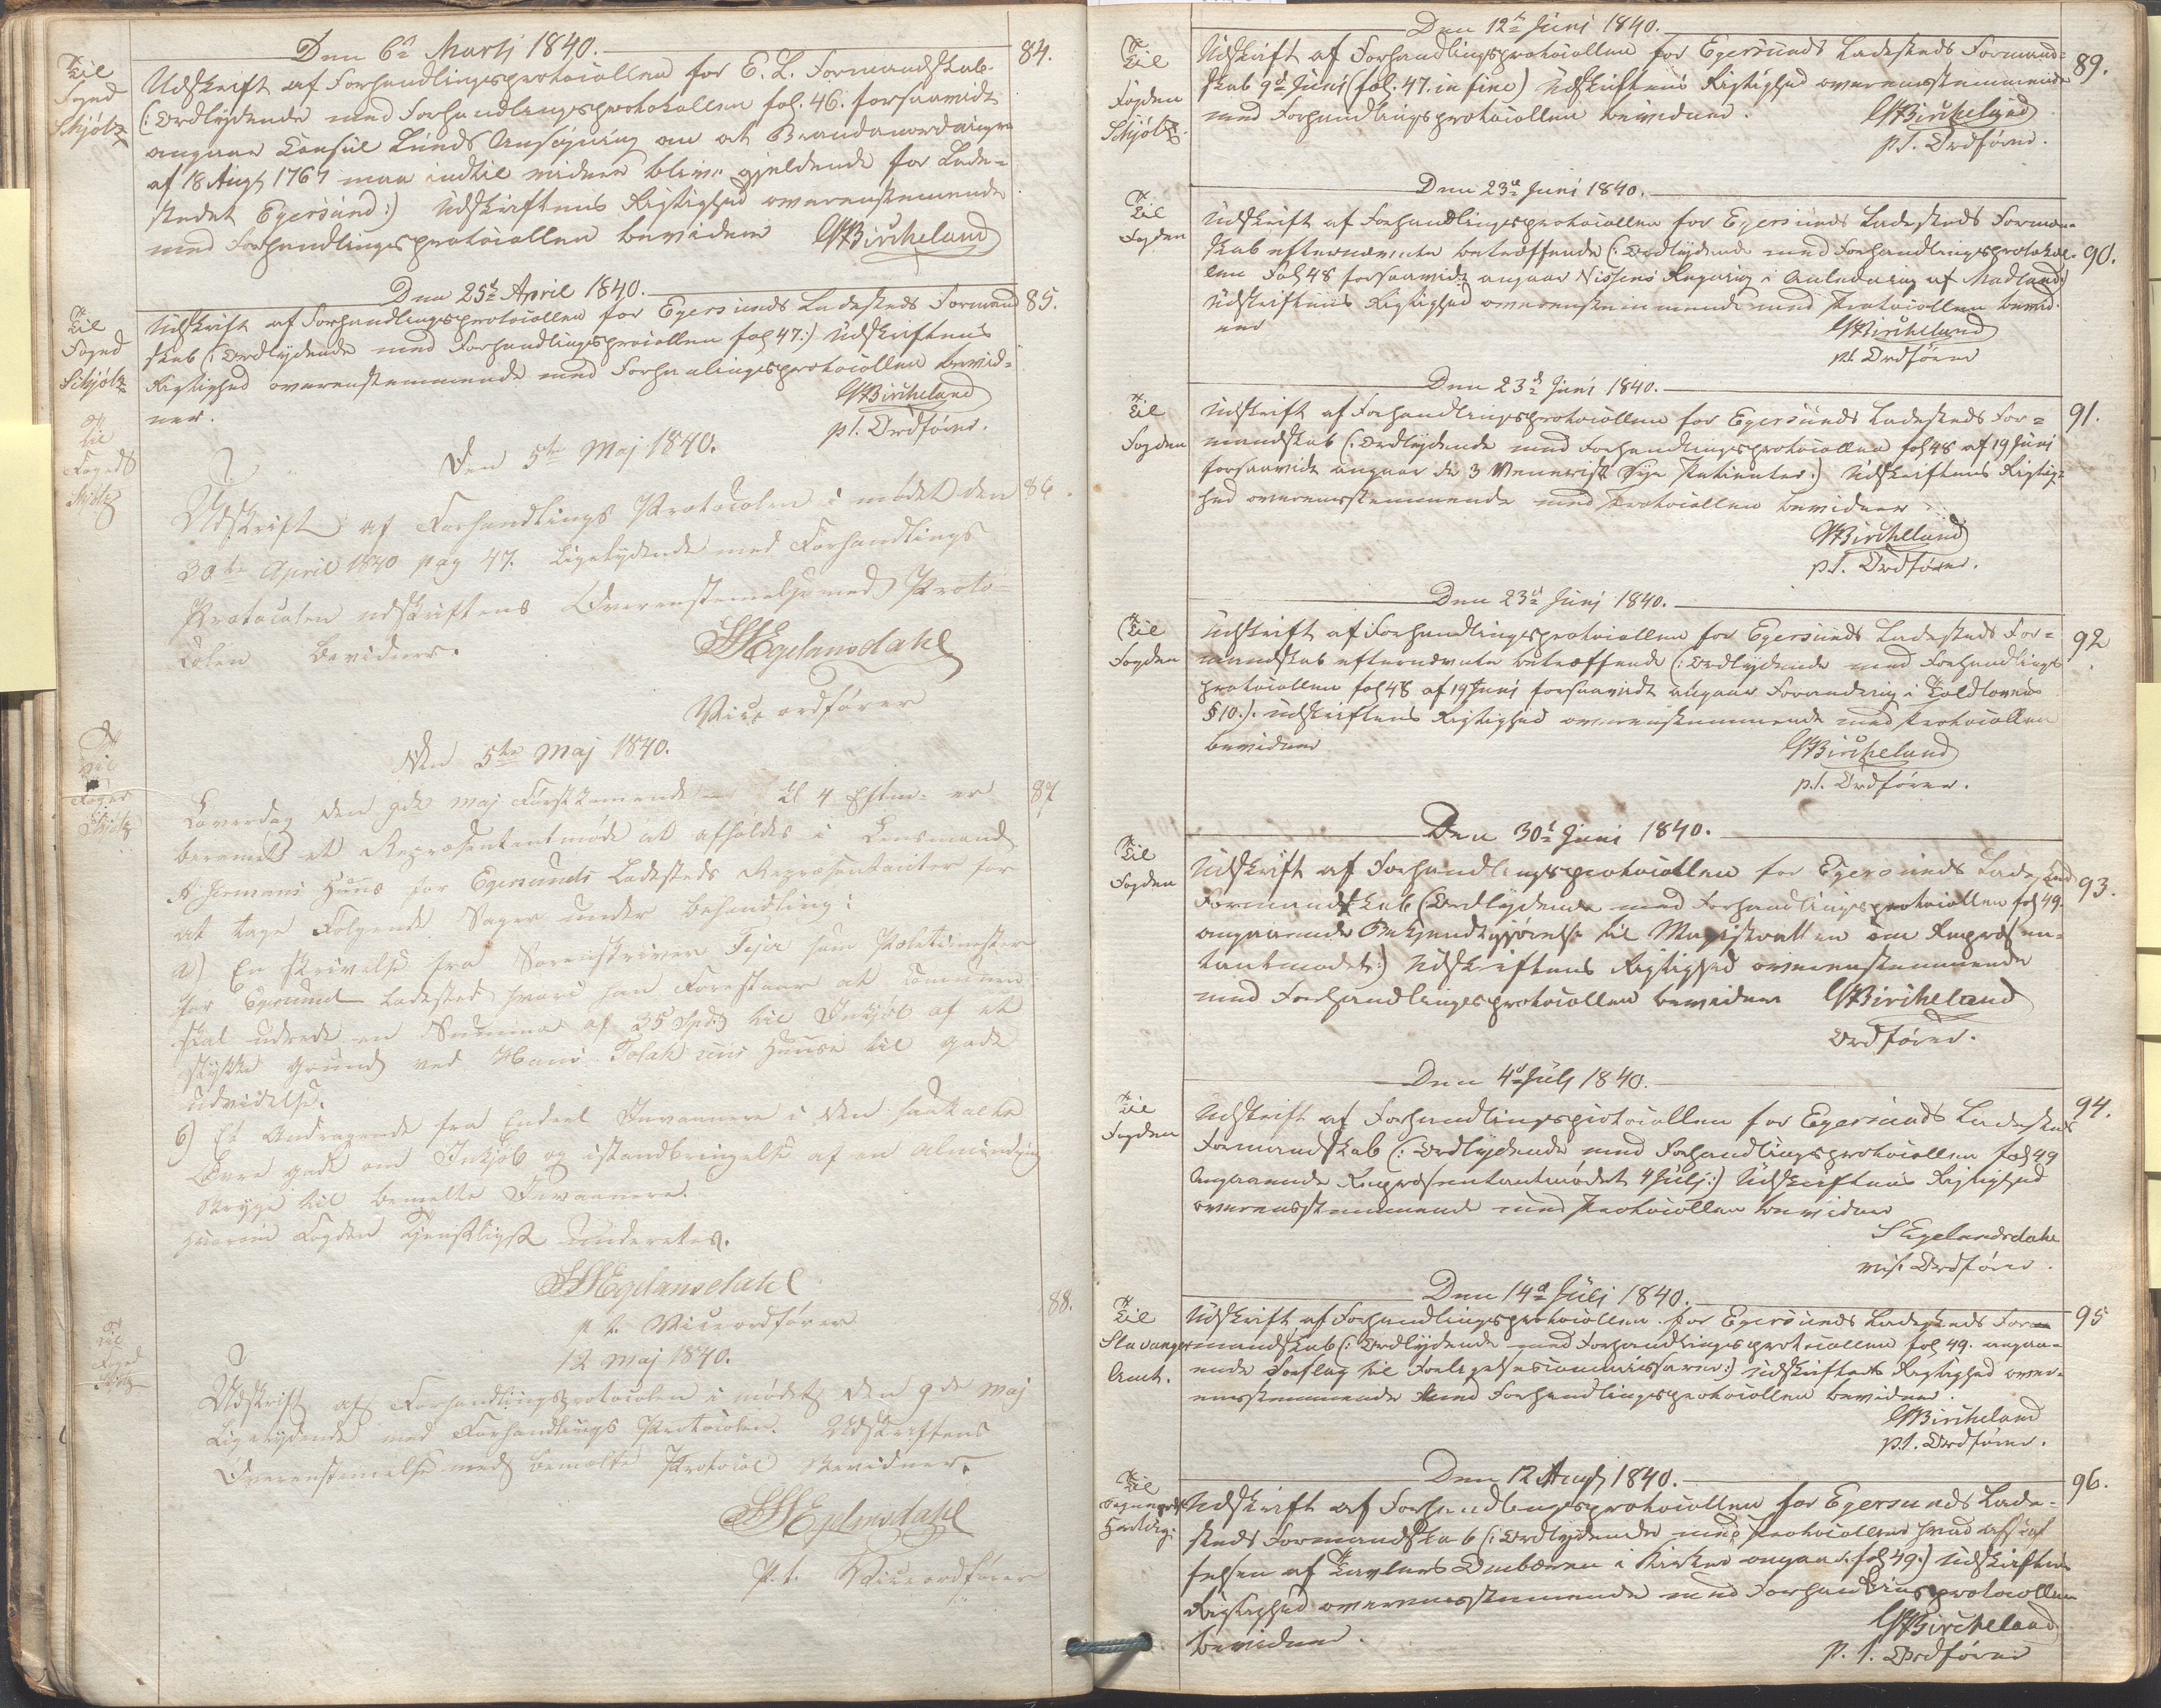 Den 6te Martj 1840.
Til
Foged
Schjøtz
84.
Udskrift af Forhandlingsprotocollen for E. L. Formandskab
(: Ordlydende med Forhandlingsprotokollen fol. 46. forsaavidt
angaar Consul Lunds Ansøgning om at Brandanordningen
af 18 Augs 1767 maa indtil videre blive gjeldende for Lade-
stedet Egersund:) Udskriftens Rigtighed overenstemmende
med Forhandlingsprotocollen bevidner GBircheland
Den 25de April 1840.
Til
Foged
Schjøtz
85.
Udskrift af Forhandlingsprotocollen for Egersunds Ladesteds Formand
skab (: Ordlydende med Forhandlingsprotocollen fol 47:) Udskriftens
Rigtighed overenstemmende med Forhandlingsprotocollen bevid-
ner.
GBircheland
pt. Ordfører.
Den 5te Maj 1840.
Til
Foged
Schiøtz
86.
Udskrift af Forhandlings Protocolen i mødet den
30te April 1840 pag 47. Ligelydende med Forhandlings
Protocolen udskriftens Overenstemelse med Proto-
colen Bevidner.
SEgelandsdahl
Vice ordfører
Den 5te Maj 1840.
Til
Foged
Schiøtz
87
Løverdag den 9de Maj Førstkomende Kl 4 Eftm. er
berammet et Repræsentantmøde at afholdes i Lensmand
Hermans Huus for Egersunds Ladesteds Repræsentanter for
at tage Følgende Sager under Behandling:
a) En skrivelse fra Sorenskriver Fejer som Politimester
for Egersund Ladested hvori han Forestaar at Comunen
skal udrede en Summa af 35 Spd til Inkjøb af et
stykke Grund ved Hans Tolaksens Huuse til gade
udvidelse.
b) Et Andragende fra Endeel Invaanere i den saakalte
Øvre gade om Inkjøb og istandbringelse af en almindelig
Brygge til bemelte Invaanere.
Hvorom Fogden Tjenstligst Underettes.
SEgelandsdahl
p t. Viceordfører
12 Maj 1840.
Til
Foged
Schiøtz
88.
Udskrift af Forhandlingsprotocolen i mødet den 9de Maj
Ligelydende med Forhandlings Protocolen. Udskriftens
Overenstemelse med bemelte Protocol Bevidner.
SEgelandsdahl
P. t. Viceordfører
Den 12te Juni 1840.
Til
Fogden
Schjøtz.
89.
Udskrift af Forhandlingsprotocollen for Egersunds Ladesteds Formand-
skab 9de Juni (fol. 47. in fine) Udskriftens Rigtighed overensstemmende
med Forhandlingsprotocollen bevidner.
GBircheland
pt. Ordfører.
Den 23de Juni 1840.
Til
Fogden
90.
Udskrift af Forhandlingsprotocollen for Egersunds Ladesteds Forman-
skab efternævnte betræffende (: Ordlydende med Forhandlingsprotokol-
len Fol 48 forsaavidt angaar Nissens Regning i Anledning af Madland:)
Udskriftens Rigtighed overenstemmende med Protocollen bevid-
ner
GBircheland
pt. Ordfører
Den 23de Juni 1840.
Til
Fogden
91.
Udskrift af Forhandlingsprotocollen for Egersunds Ladesteds For-
mandskab (: Ordlydende med Forhandlingsprotocollen fol 48 af 19 Juni
forsaavidt angaar de 3 Venerisk Syge Patienter:) Udskriftens Rigtig-
hed overensstemmende med Protocollen bevidner
GBircheland
p.t. Ordfører.
Den 23de Junj 1840.
Til
Fogden
92
Udskrift af Forhandlingsprotocollen for Egersunds Ladesteds For-
mandskab efternævnte betræffende (: Ordlydende med Forhandlings
protocollen fol 48 af 19 Juni forsaavidt angaar Forandring i Toldlovens
§ 10.:) Udskriftens Rigtighed overenstemmende med Protocollen
bevidner
GBircheland
p.t. Ordfører.
Den 30te Juni 1840.
Til
Fogden
93.
Udskrift af Forhandlingsprotocollen for Egersunds Ladesteds
Formandskab (Ordlydende med Forhandlingsprotocollen fol 49.
angaaende Bekjendtgjørelse til Magistratten om Repræsen-
tantmødet:) Udskriftens Rigtighed overenstemmende
med Forhandlingsprotocollen bevidner GBircheland
Ordfører.
Den 4de Julj 1840.
Til
Fogden
94.
Udskrift af Forhandlingsprotocollen for Egersunds Ladesteds
Formandskab (: Ordlydende med Forhandlingsprotocollen fol 49
Angaaende Repræsentantmødet 4 Julj:) Udskriftens Rigtighed
overensstemmende med Protocollen bevidner
S Egelandsdahl
vise Ordfører.
Den 14de Juli 1840.
Til
Stavanger
Amt.
95
Udskrift af Forhandlingsprotocollen for Egersunds Ladesteds For
mandskab (: Ordlydende med Forhandlingsprotocollen fol 49. angaa-
ende Forslag til Forligelsescommissairer:) Udskriftens Rigtighed over-
ensstemmende med Forhandlingsprotocollen bevidner.
GBircheland
p.t. Ordfører.
Den 12 Augs 1840.
Til
Sognepræst
Hertzberg.
96.
Udskrift af Forhandlingsprotocollen for Egersunds Lade-
steds Formandskab (: Ordlydende med Protocollen hvad
af i Kirken angaar fol 49.) Udskriftens
Rigtighed overensstemmende med Forhandlingsprotocollen
bevidner.
GBircheland
p. t. Ordfører